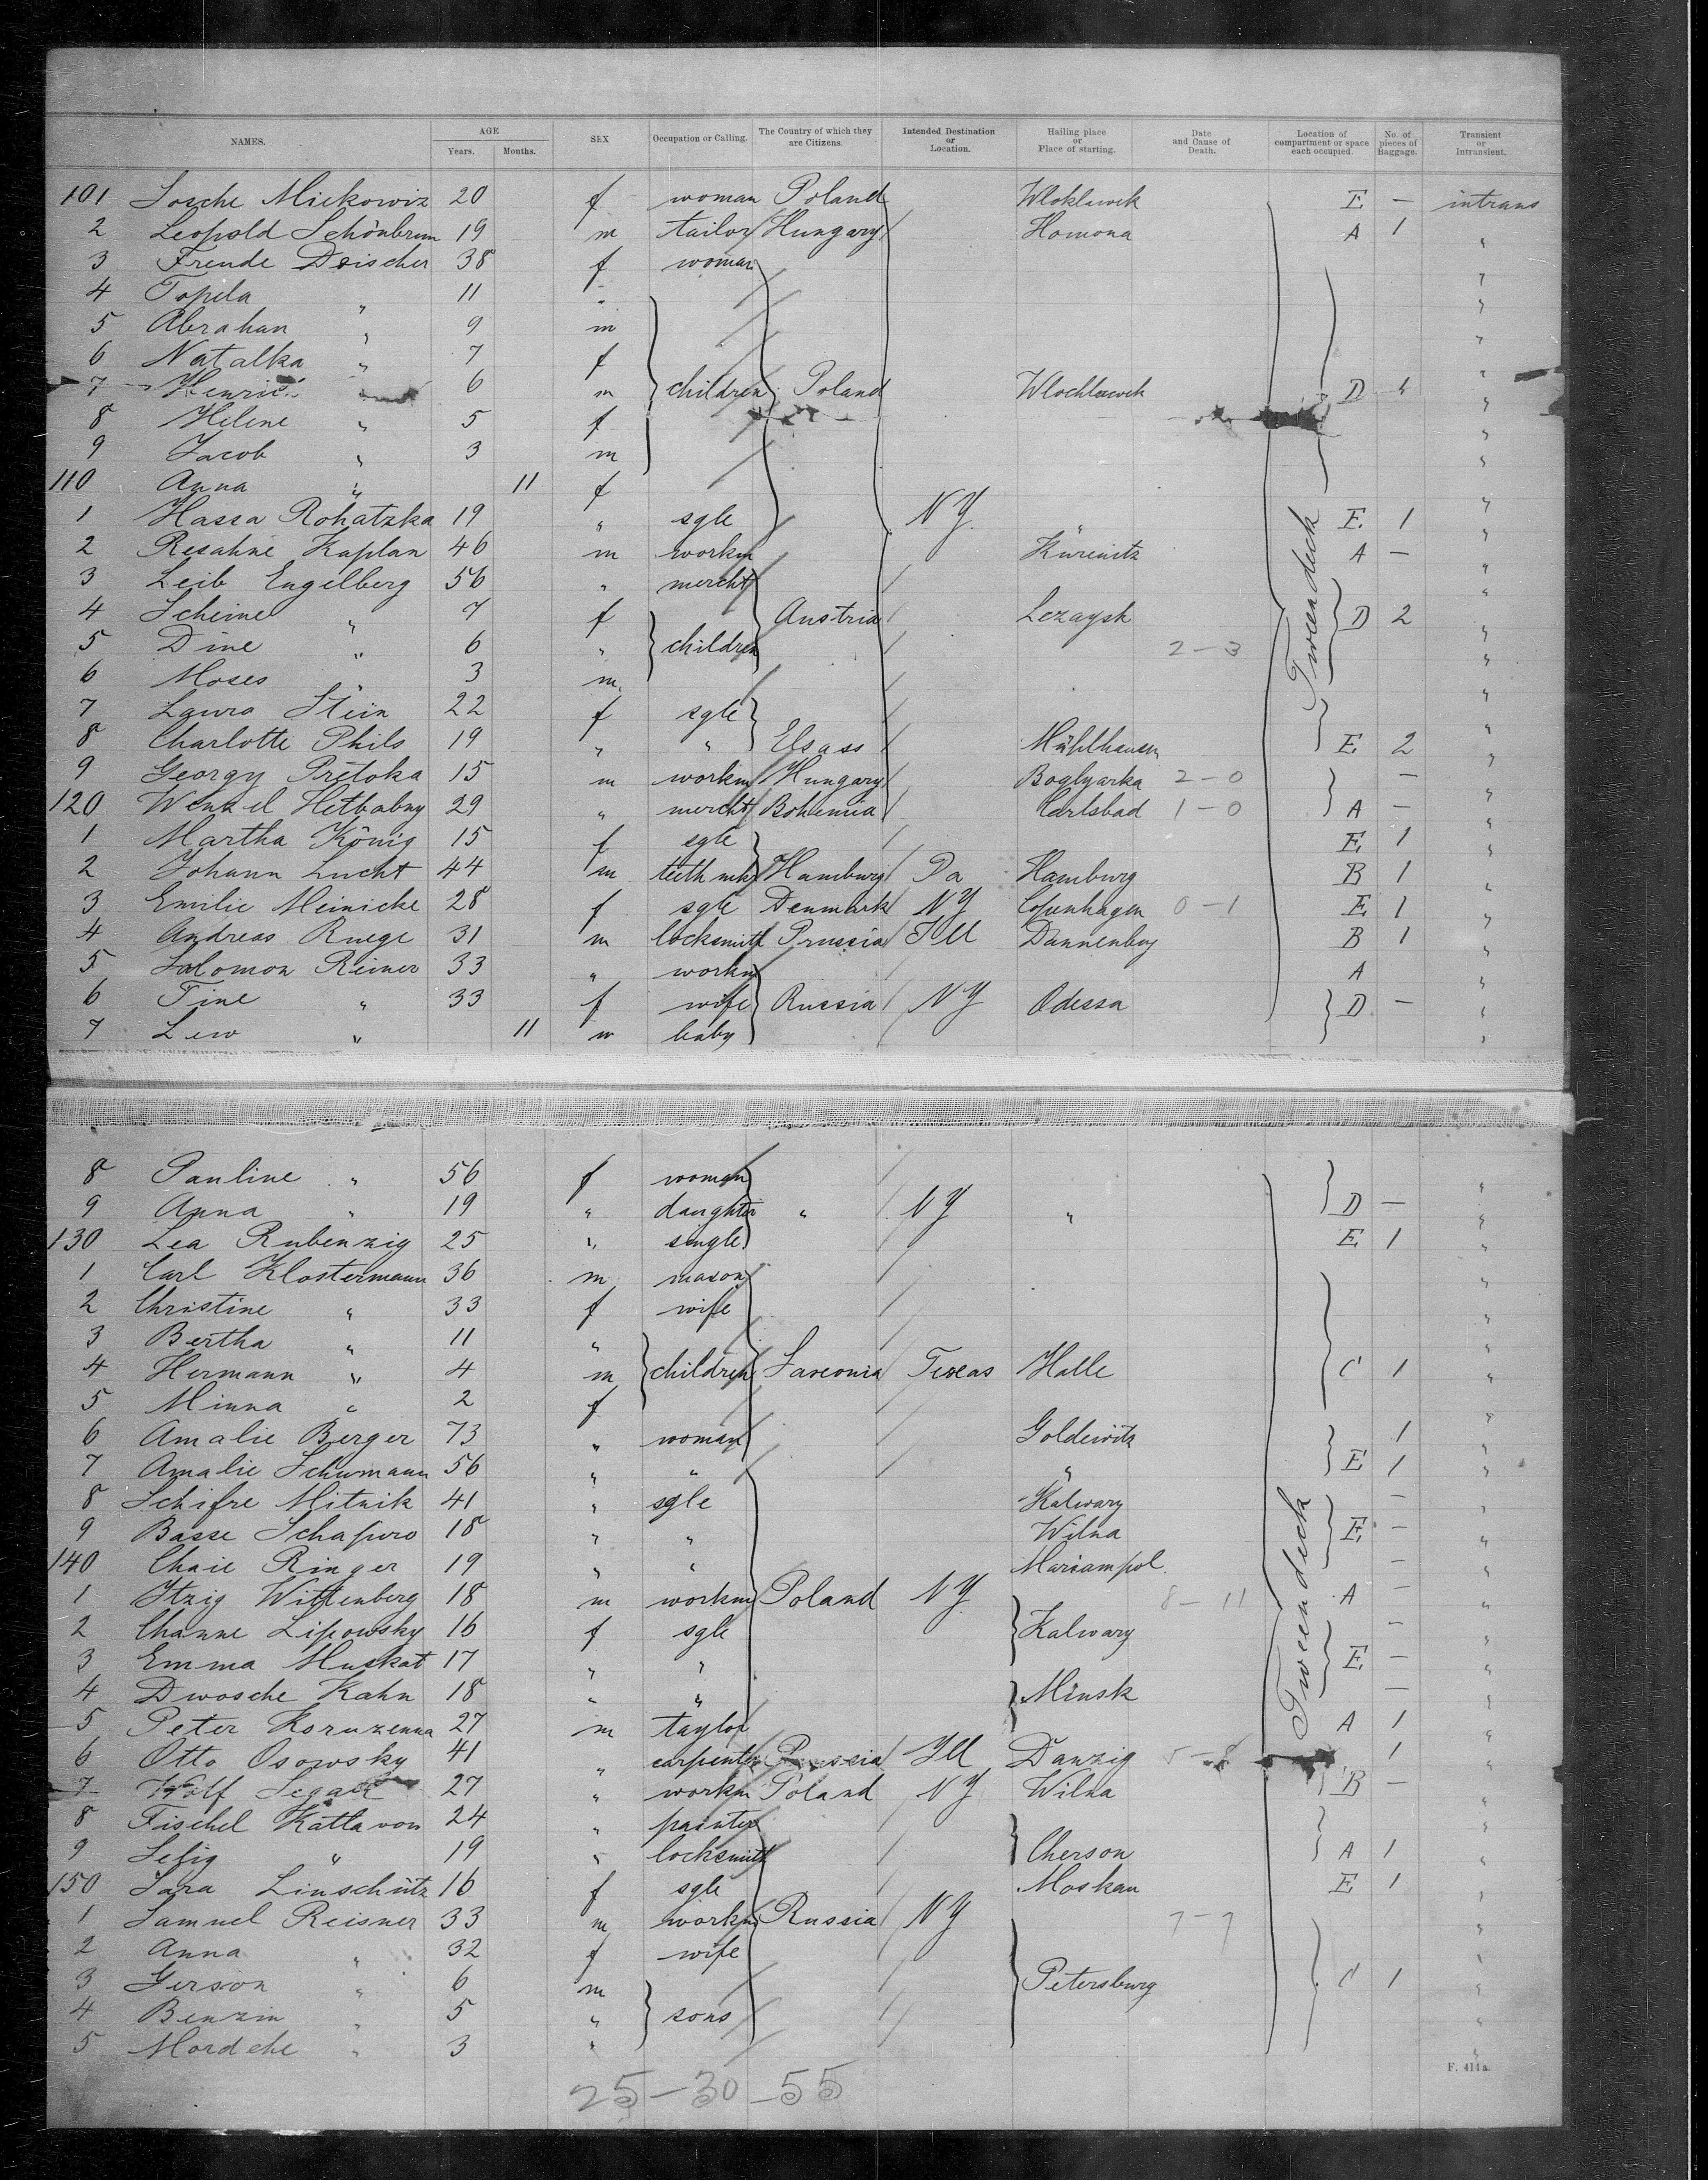 NAMES. AGE Years. Months. SEX Occupation or Calling. The Country of which they are Citizens. Intended Destination or Location. Hailing place or Place of starting. Date and Cause of Death. Location of compartment or space each occupied. No. of pieces of Baggage. Transient or Intransient.
101 Sosche Miekowiz 20 f woman Poland Wloklawek E — intrans
2 Leopold Schönbrun 19 m tailor Hungary Homona A 1 "
3 Freude Deischer 38 f woman "
4 Topela " 11 " "
5 Abraham " 9 m "
6 Natalka " 7 f "
7 Henric " 6 m children Poland Wlochlawek D 1 "
8 Helene " 5 f "
9 Jacob " 3 m "
110 Anna " 11 f "
1 Hassa Rohatzka 19 " sgle NY " E 1 "
2 Resahne Kaplan 46 m workm Kürenitz A — "
3 Leib Engelberg 56 " mercht "
4 Scheine " 7 f Austria Lezaysk D 2 "
5 Dine " 6 " children 2-3 "
6 Moses " 3 m "
7 Laura Stein 22 f sgle "
8 Charlotte Phils 19 " " Elsass Mühlhausen E 2 "
9 Georgy Pretoka 15 m workm Hungary Boglyarka 2-0 — "
120 Wenzel Hetbabny 29 " mercht Bohemia Carlsbad 1-0 A — "
1 Martha König 15 f sgle E 1 "
2 Johann Lucht 44 m teeth mkr Hamburg Pa Hamburg B 1 "
3 Emilie Meinicke 28 f sgle Denmark NY Copenhagen 0-1 E 1 "
4 Andreas Ruege 31 m locksmith Prussia Ill Dannenberg B 1 "
5 Salomon Reiner 33 " workm A "
6 Tine " 33 f wife Russia NY Odessa D — "
7 Lew " 11 m baby "
Tweendeck
8 Pauline " 56 f woman "
9 Anna " 19 " daughter " NY " D — "
130 Lea Rubenzig 25 " single E 1 "
1 Carl Klostermann 36 m mason "
2 Christine " 33 f wife "
3 Bertha " 11 " "
4 Hermann " 4 m children Saxonia Texas Halle C 1 "
5 Minna " 2 f "
6 Amalie Berger 73 " woman Goldewitz 1 "
7 Amalie Schumann 56 " " " E 1 "
8 Schifre Mitnik 41 " sgle Kalwary — "
9 Basse Schapiro 18 " " Wilna E — "
140 Chaie Ringer 19 " " Mariampol. — "
1 Itzig Wittenberg 18 m workm Poland NY 8-11 A — "
2 Channe Lipowsky 16 f sgle Kalwary — "
3 Emma Muskat 17 " " E — "
4 Dwosche Kahn 18 " " Minsk — "
5 Peter Koruzenna 27 m taylor A 1 "
6 Otto Osowsky 41 " carpenter Prussia Ill Danzig 5-8 1 "
7 Wolf Segall 27 " workm Poland NY Wilna B — "
8 Fischel Kattavon 24 " painter "
9 Selig " 19 " locksmith Cherson A 1 "
150 Sara Linschütz 16 f sgle Moskau E 1 "
1 Samuel Reisner 33 m workm Russia NY 7-7 "
2 Anna " 32 f wife "
3 Gerson " 6 m Petersburg C 1 "
4 Benzin " 5 " sons "
5 Mordche " 3 " "
Tweendeck
F. 414a.
25-30-55